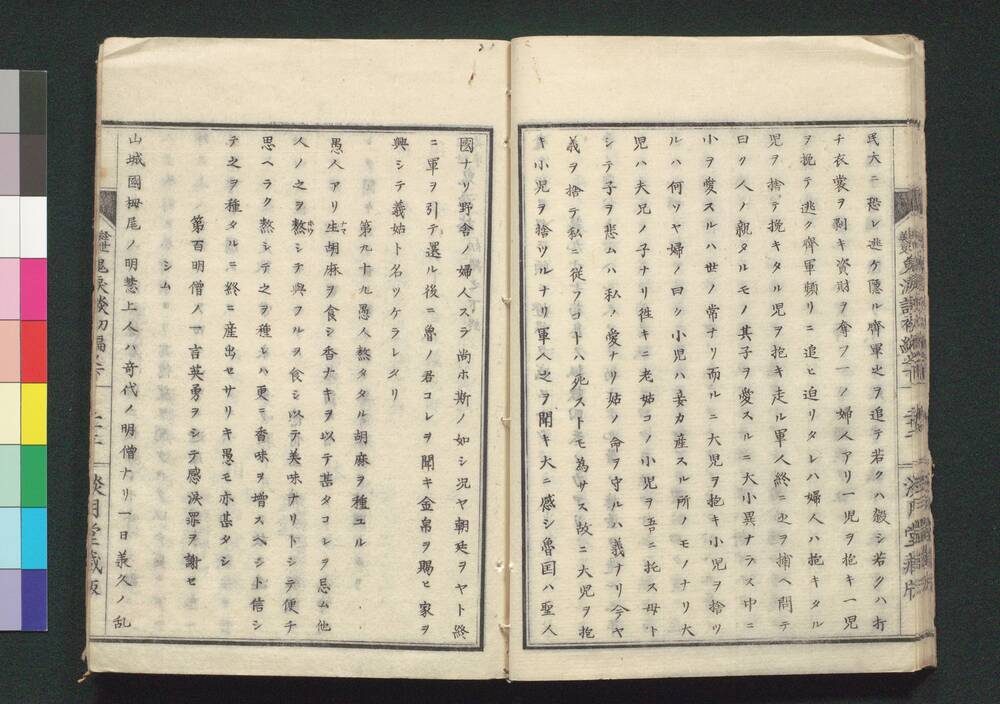 民大ニ恐レ逃ケ隠ル齊軍之ヲ追テ若クハ殺シ若クハ打
チ衣裳ヲ剥キ資財ヲ奪フ一ノ婦人アリ一児ヲ抱キ一児
ヲ挽テ逃ク齊軍頻リニ追ヒ迫リタレハ婦人ハ抱キタル
児ヲ捨テ挽キタル児ヲ抱キ走ル軍人終ニ之ヲ捕ヘ問テ
曰ク人ノ親タルモノ其子ヲ愛スルニ大小異ナラス中ニ
小ヲ愛スルハ世ノ常ナリ而ルニ大児ヲ抱キ小児ヲ捨ツ
ルハ何ソヤ婦ノ曰ク小児ハ妾カ産スル所ノモノナリ大
児ハ夫兄ノ子ナリ徃キニ老姑コノ小児ヲ吾ニ托ス母ト
シテ子ヲ悲ムハ私ノ愛ナリ姑ノ命ヲ守ルハ義ナリ今ヤ
義ヲ捨テ私ニ従フコトハ死ストモ為サス故ニ大児ヲ抱
キ小児ヲ捨ツルナリ軍人之ヲ聞キ大ニ感シ魯国ハ聖人
國ナリ野舎ノ婦人スラ尚ホ斯ノ如シ况ヤ朝廷ヲヤト終
ニ軍ヲ引テ還ル後ニ魯ノ君コレヲ聞キ金帛ヲ賜ヒ家ヲ
興シテ義姑ト名ツケラレタリ
第九十九愚人熬タル胡麻ヲ種ユル
愚人アリ生胡麻ヲ食シ香ナキヲ以テ甚タコレヲ忌ム他
人ノ之ヲ熬シテ與フルヲ食シ以テ美味ナリトシテ便チ
思ヘラク熬シテ之ヲ種レハ更ニ香味ヲ増スヘシト信シ
テ之ヲ種タルニ終ニ産出セサリキ愚モ亦甚タシ
第百明僧ノ一言英勇ヲシテ感泱罪ヲ謝セ
シム
山城國栂尾ノ明惠上人ハ奇代ノ明僧ナリ一日義久ノ乱
談初編
談明堂蔵版